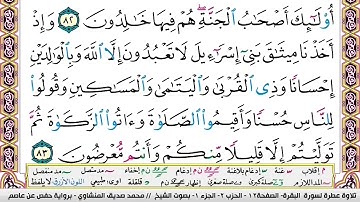 أُو۟لَـٰٓئِكَ أَصْحَـٰبُ ٱلْجَنَّةِ هُمْ فِيهَا خَـٰلِدُونَ ٨٢ وَإِذْ
أَخَذْنَا مِيثَـٰقَ بَنِىٓ إِسْرَٰٓءِيلَ لَا تَعْبُدُونَ إِلَّا ٱللَّهَ وَبِٱلْوَٰلِدَيْنِ
إِحْسَانًا وَذِى ٱلْقُرْبَىٰ وَٱلْيَتَـٰمَىٰ وَٱلْمَسَـٰكِينِ وَقُولُوا۟
لِلنَّاسِ حُسْنًا وَأَقِيمُوا۟ ٱلصَّلَوٰةَ وَءَاتُوا۟ ٱلزَّكَوٰةَ ثُمَّ
تَوَلَّيْتُمْ إِلَّا قَلِيلًا مِّنكُمْ وَأَنتُم مُّعْرِضُونَ ٨٣
تلاوة عطرة لسورة البقرة - الصفحة ١٢ - الحزب ٢ - الجزء ١ - بصوت الشيخ // محمد صديق المنشاوي - برواية حفص عن عاصم